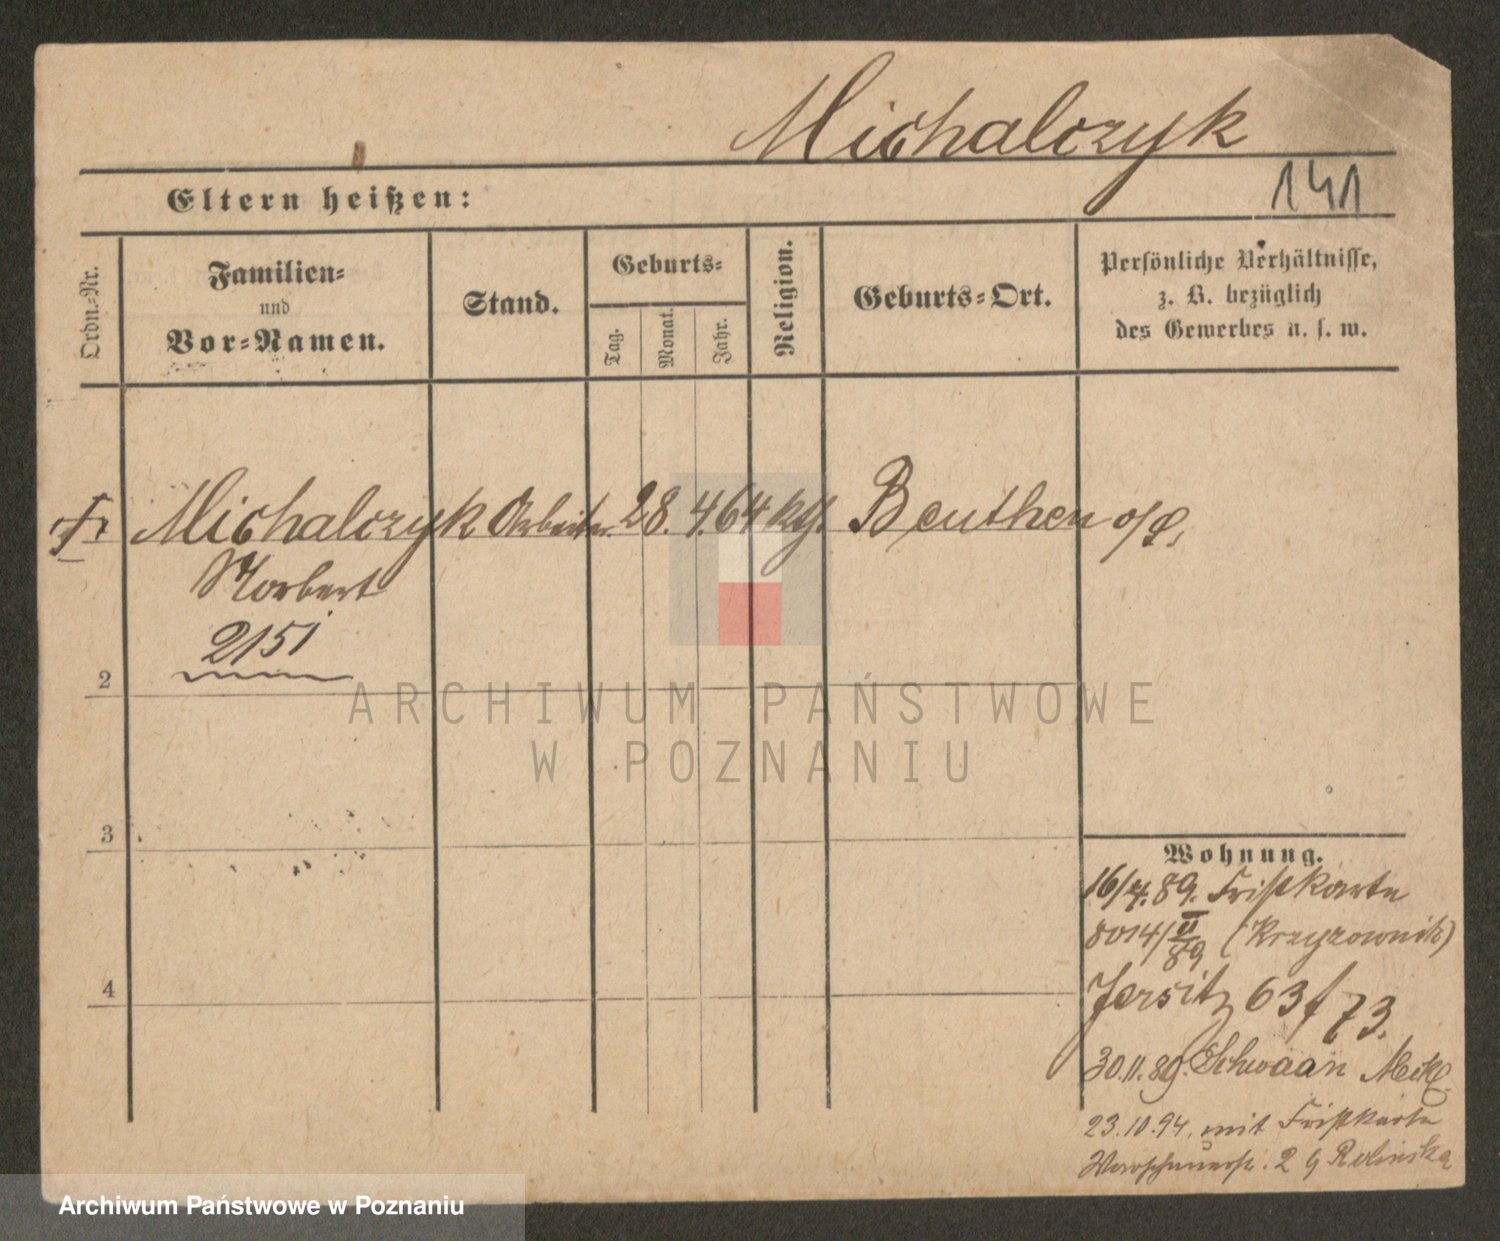 Michalczyk
Eltern heißen:
141
Ordn.-Nr.
Familien-
und
Vor-Namen.
Stand.
Geburts-
Tag.
Monat.
Jahr.
Religion.
Geburts-Ort.
Persönliche Verhältnisse,
z. B. bezüglich
des Gewerbes u. s. w.
Michalczyk Arbeiter 28. 4. 64 kth. Beuthen o/S.
Norbert
2151
2
3
4
Wohnung.
16/4. 89. Fristkarte
8014/II 89 (Krzyzownik)
Jersitz 63 f 73.
30.11.89. Schwaan Meckl
23.10.94. mit Fristkarte
Warschauerstr. 2
ARCHIWUM PAŃSTWOWE
W POZNANIU
Archiwum Państwowe w Poznaniu